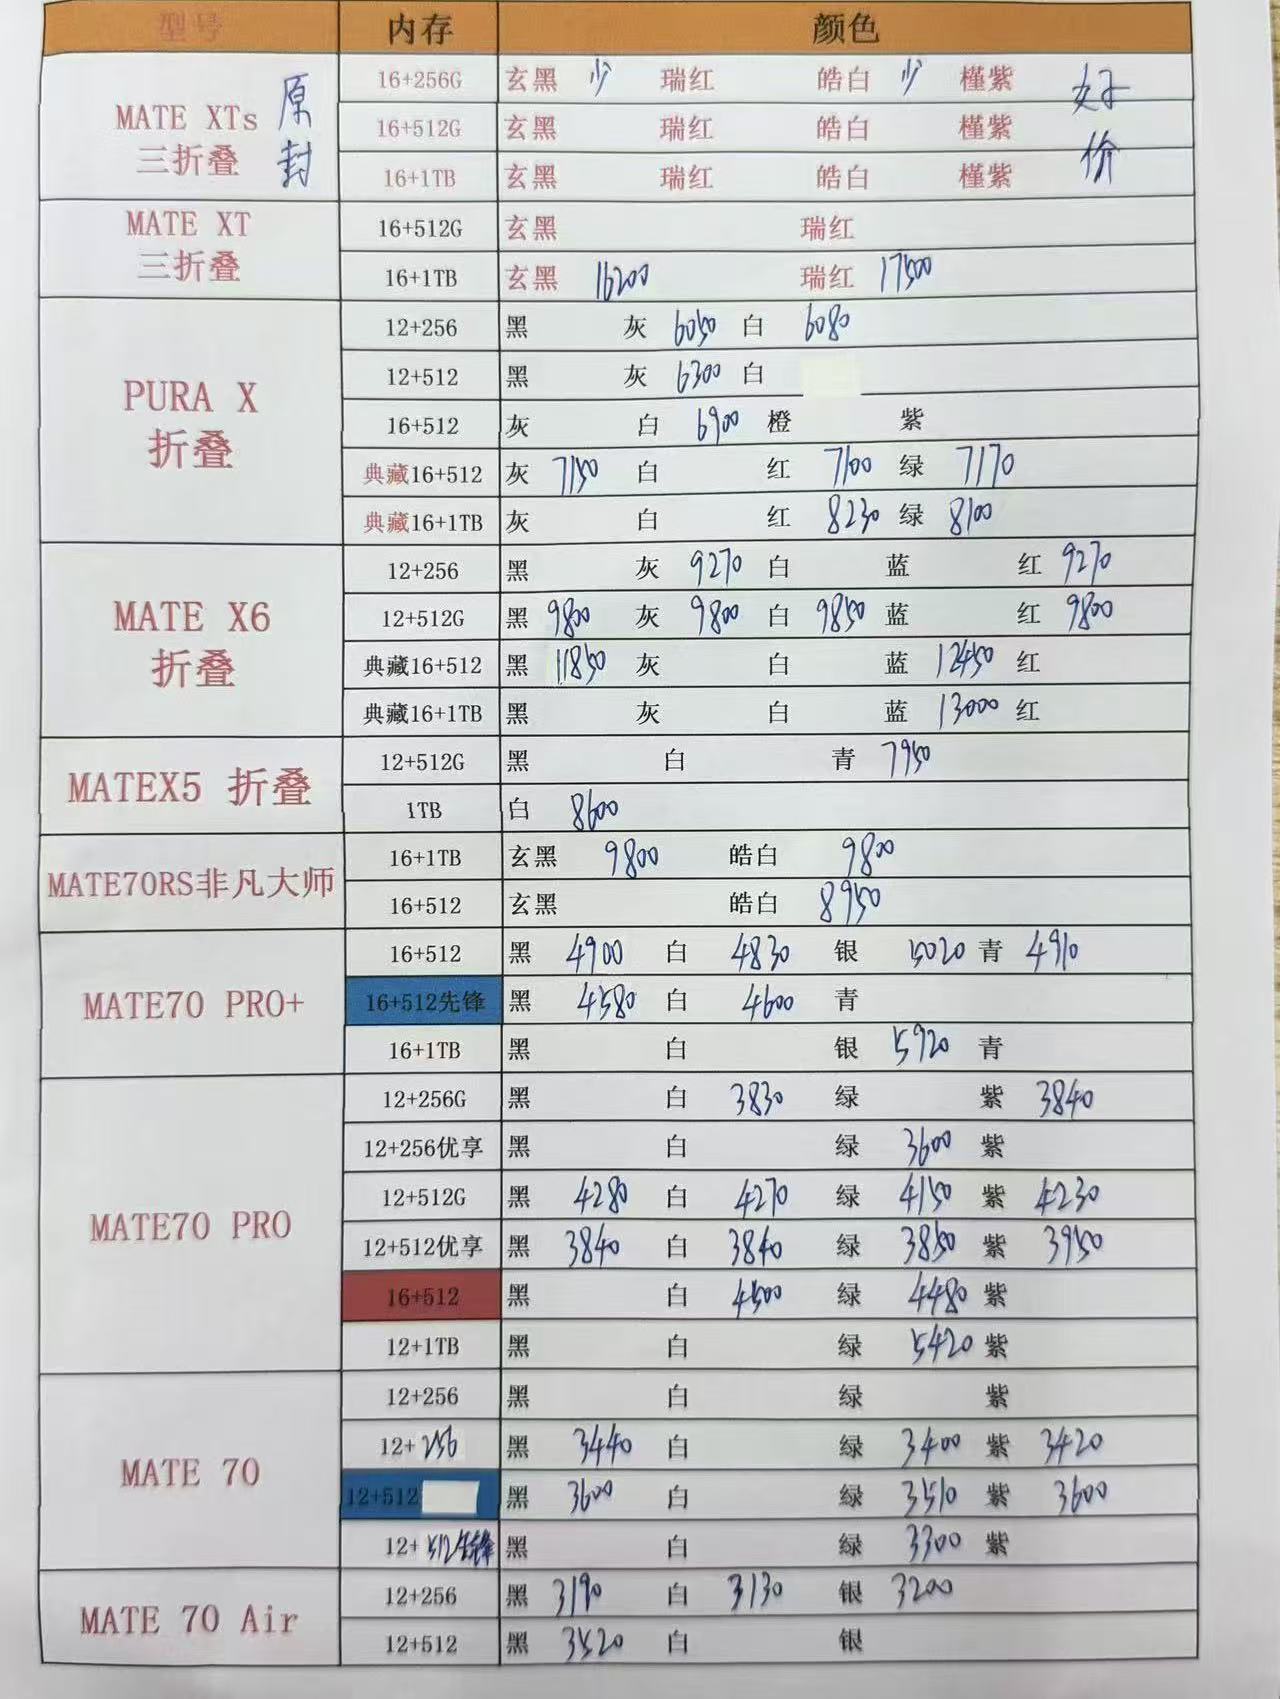 型号 内存 颜色
MATE XTs 三折叠 原封
16+256G 玄黑 少 瑞红 皓白 少 槿紫 好
16+512G 玄黑 瑞红 皓白 槿紫 价
16+1TB 玄黑 瑞红 皓白 槿紫
MATE XT 三折叠
16+512G 玄黑 瑞红
16+1TB 玄黑 16200 瑞红 17500
PURA X 折叠
12+256 黑 灰 6050 白 6080
12+512 黑 灰 6300 白
16+512 灰 白 6900 橙 紫
典藏16+512 灰 7150 白 红 7100 绿 7170
典藏16+1TB 灰 白 红 8230 绿 8100
MATE X6 折叠
12+256 黑 灰 9270 白 蓝 红 9270
12+512G 黑 9800 灰 9800 白 9850 蓝 红 9800
典藏16+512 黑 11850 灰 白 蓝 12450 红
典藏16+1TB 黑 灰 白 蓝 13000 红
MATEX5 折叠
12+512G 黑 白 青 7950
1TB 白 8600
MATE70RS非凡大师
16+1TB 玄黑 9800 皓白 9800
16+512 玄黑 皓白 8950
MATE70 PRO+
16+512 黑 4900 白 4830 银 5020 青 4910
16+512先锋 黑 4580 白 4600 青
16+1TB 黑 白 银 5920 青
MATE70 PRO
12+256G 黑 白 3830 绿 紫 3840
12+256优享 黑 白 绿 3600 紫
12+512G 黑 4280 白 4270 绿 4150 紫 4230
12+512优享 黑 3840 白 3840 绿 3850 紫 3950
16+512 黑 白 4500 绿 4480 紫
12+1TB 黑 白 绿 5420 紫
MATE 70
12+256 黑 白 绿 紫
12+256 黑 3440 白 绿 3400 紫 3420
12+512 黑 3600 白 绿 3510 紫 3600
12+512先锋 黑 白 绿 3300 紫
MATE 70 Air
12+256 黑 3190 白 3130 银 3200
12+512 黑 3520 白 银